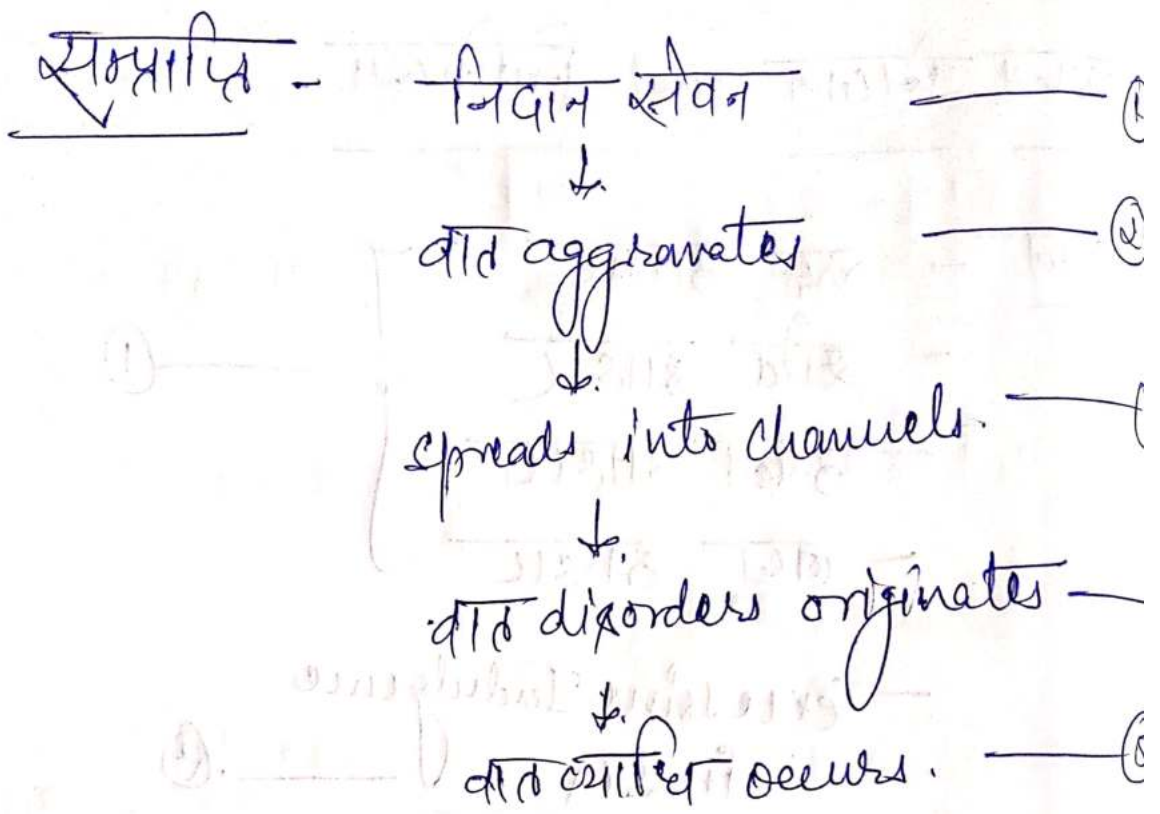 सम्प्राप्ति - निदान सेवन —— ①
↓
वात aggravates —— ②
↓
spreads into channels. ——
↓
वात disorders originates —
↓
वात व्याधि occurs. ——